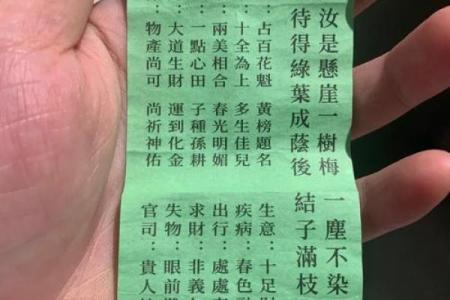 汝是懸崖一樹梅 一塵不染
待得綠葉成蔭後 結子滿枝
：占百花魁 黃榜題名
：十全為上 多生佳兒
：兩美相合 春光明媚
：一點心田 子種孫耕
：大道生財 運到化金
：物產尚可 尚祈神佑
生意：十足
疾病：春色
出行：處處
求財：非義
失物：眼前
官司：貴人